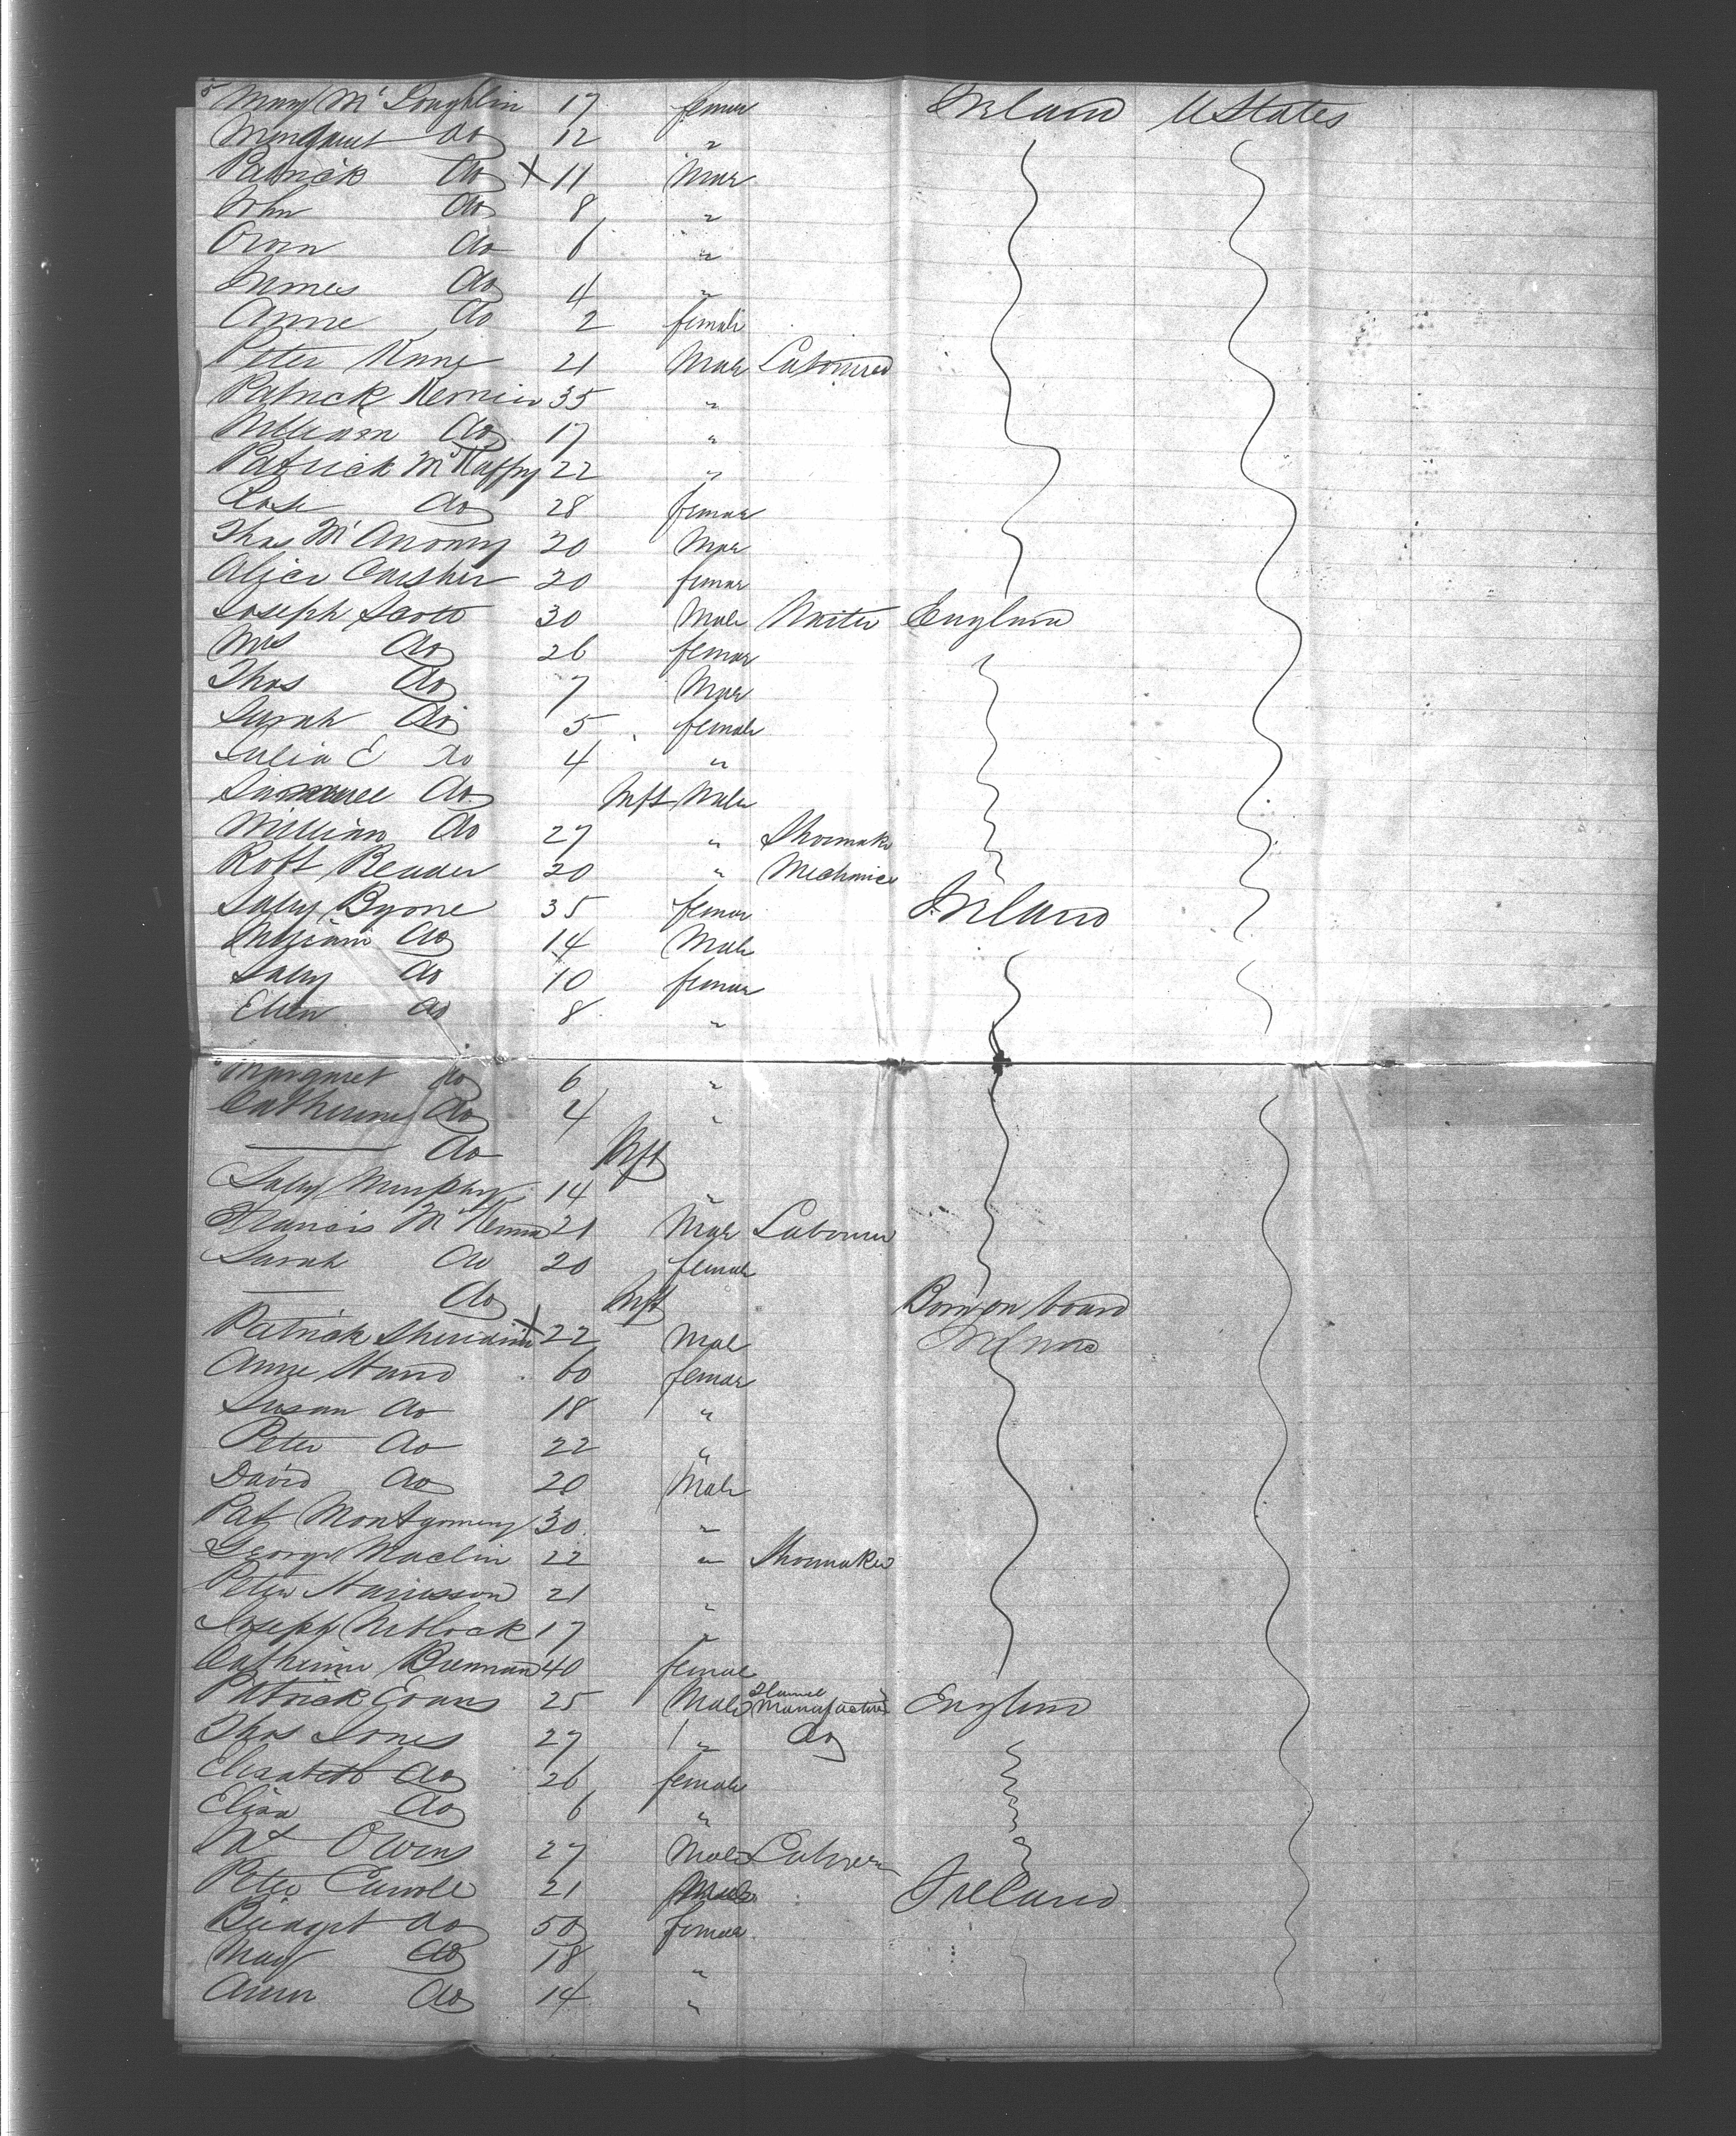 Mary McLoughlin 17 female Ireland U States
Margaret do 12 "
Patrick do X 11 Male
John do 8 "
Owen do 6 "
James do 4 "
Anne do 2 female
Peter Kane 21 Male Labourer
Patrick Kernin 35 "
William do 17 "
Patrick McKaffry 22 "
Rose do 28 female
Thos McAnonny 20 Male
Alice 20 female
Joseph Scott 30 Male England
Mrs do 26 female
Thos do 7 Male
Sarah do 5 female
Julia E do 4 "
Samuel do Inft Male
William do 27 " Shoemaker
Robt Beader 20 " Mechanic
Sally Byrne 35 female Ireland
William do 14 Male
Sally do 10 female
Ellen do 8 "
Margaret do 6 "
Catherine do 4 "
—— do Inft
Sally Murphy 14 "
Francis McKenna 21 Male Labourer
Sarah do 20 female
—— do Inft Born on board
Patrick Sheridan X 22 Male Ireland
Anne Hand 60 female
Susan do 18 "
Peter do 22 "
David do 20 Male
Pat Montgomery 30 "
George Maclin 22 " Shoemaker
Peter Harrisson 21 "
Joseph 17 "
Catherine Brennan 40 female
Patrick Evans 25 Male Flannel Manufacturer England
Thos Jones 27 " do
Elizabeth do 26 female
Eliza do 6 "
Owens 27 Male Labourer
Peter Carroll 21 Male Ireland
Bridget do 50 female
Mary do 18 "
Ann do 14 "